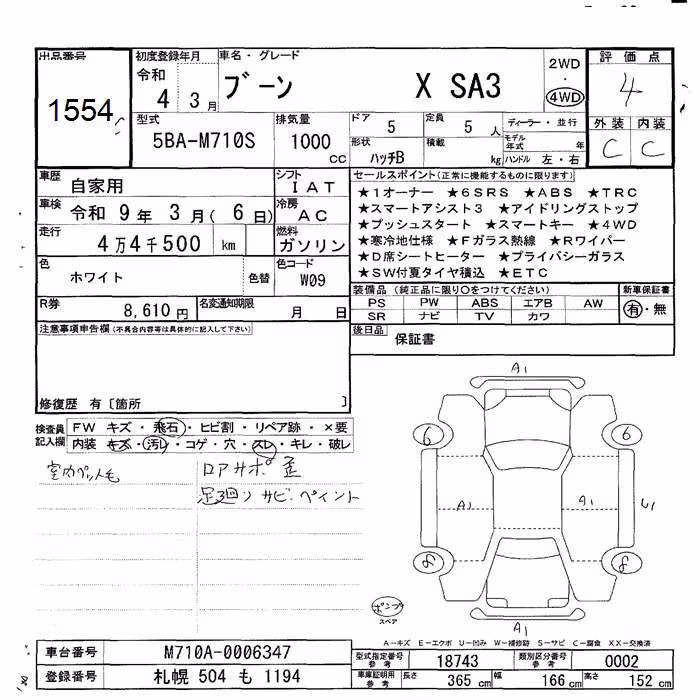 出品番号
1554
初度登録年月
令和
4 3月
車名・グレード
ブーン X SA3
2WD
・
4WD
評価点
4
外装 内装
C C
型式
5BA-M710S
排気量
1000
cc
ドア 5
定員 5 人
ディーラー・並行
形状 ハッチB
積載 kg
モデル年式 年
ハンドル 左・右
車歴
自家用
シフト
I AT
車検
令和 9年 3月( 6日)
冷房
AC
走行
4万4千500 km
燃料
ガソリン
色
ホワイト
色替
色コード
W09
R券
8,610円
名変通知期限
月 日
セールスポイント(正常に機能するものに限ります)
★1オーナー ★6SRS ★ABS ★TRC
★スマートアシスト3 ★アイドリングストップ
★プッシュスタート ★スマートキー ★4WD
★寒冷地仕様 ★Fガラス熱線 ★Rワイパー
★D席シートヒーター ★プライバシーガラス
★SW付夏タイヤ積込 ★ETC
装備品(純正品に限り○をつけてください)
新車保証書
PS PW ABS エアB AW
SR ナビ TV カワ
有・無
後日品
保証書
注意事項申告欄(不具合内容等は具体的に記入して下さい)
修復歴 有〔箇所 〕
検査員
記入欄
FW キズ・飛石・ヒビ割・リペア跡・×要
内装 キズ・汚レ・コゲ・穴・スレ・キレ・破レ
室内ペット毛
ロアサポ 歪
足廻り サビ・ペイント
A1
6
6
A1
A1
U1
8
8
A1
ポンプ
スペア
A-キズ E-エクボ U-凹み W-補修跡 S-サビ C-腐食 XX-交換済
車台番号
M710A-0006347
登録番号
札幌 504 も 1194
型式指定番号
参考
18743
類別区分番号
参考
0002
車庫証明用
参考
長さ 365 cm 幅 166 cm 高さ 152 cm